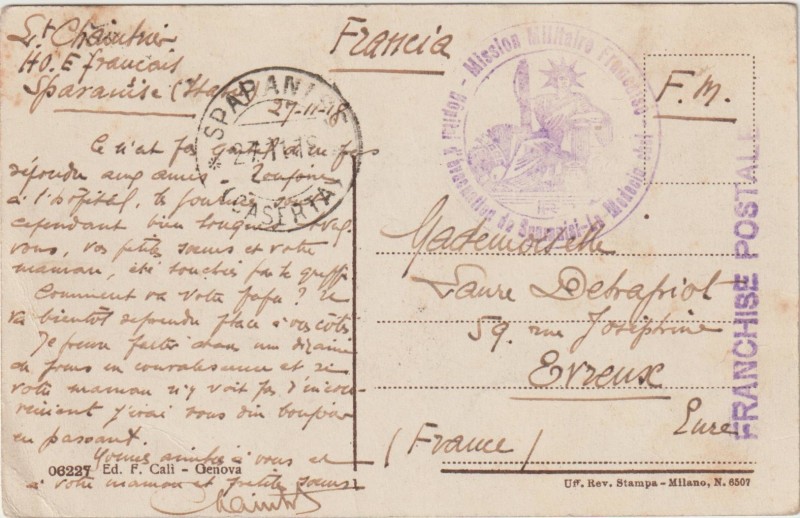 Lt Chaintrier
HO.E français
Sparanise (Italie)
27-11-18
Ce n'est pas gentil de ne pas
répondre aux amis. Toujours
à l'hôpital, je
cependant bien longue. Avez
vous, vos petites sœurs et votre
maman, été touchées par la grippe
Comment va votre papa? Il
va bientôt reprendre place à vos côtés
Je pense partir dans une dizaine
de jours en convalescence et si
votre maman n'y voit pas d'incon-
venient j'irai vous dire bonjour
en passant.
amitiés à vous et
à votre maman et petites sœurs
Chaintr
06227 Ed. F. Calì - Genova
SPARANISE
(CASERTA)
Francia
Mission Militaire Française
Hôpital d'évacuation de Sparanise - Le Médecin chef
F.M.
FRANCHISE POSTALE
Mademoiselle
Laure Detrafriol
59, rue Joséphine
Evreux
Eure
(France)
Uff. Rev. Stampa - Milano, N. 6507